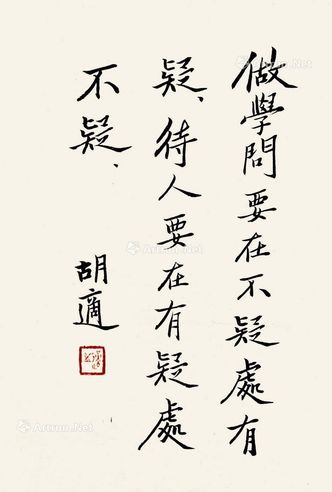 做學問要在不疑處有
疑、待人要在有疑處
不疑、
胡適
Artron.Net
Artron.Net
Artron.Net